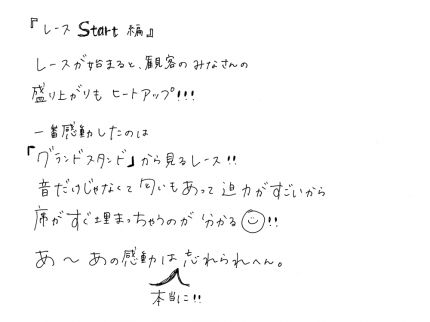 『レース Start 編』
レースが始まると、観客のみなさんの
盛り上がりも ヒートアップ!!!
一番感動したのは
「グランドスタンド」から見るレース!!
音だけじゃなくて匂いもあって迫力がすごいから
席がすぐ埋まっちゃうのが分かる!!
あ〜あの感動は忘れられへん。
本当に!!